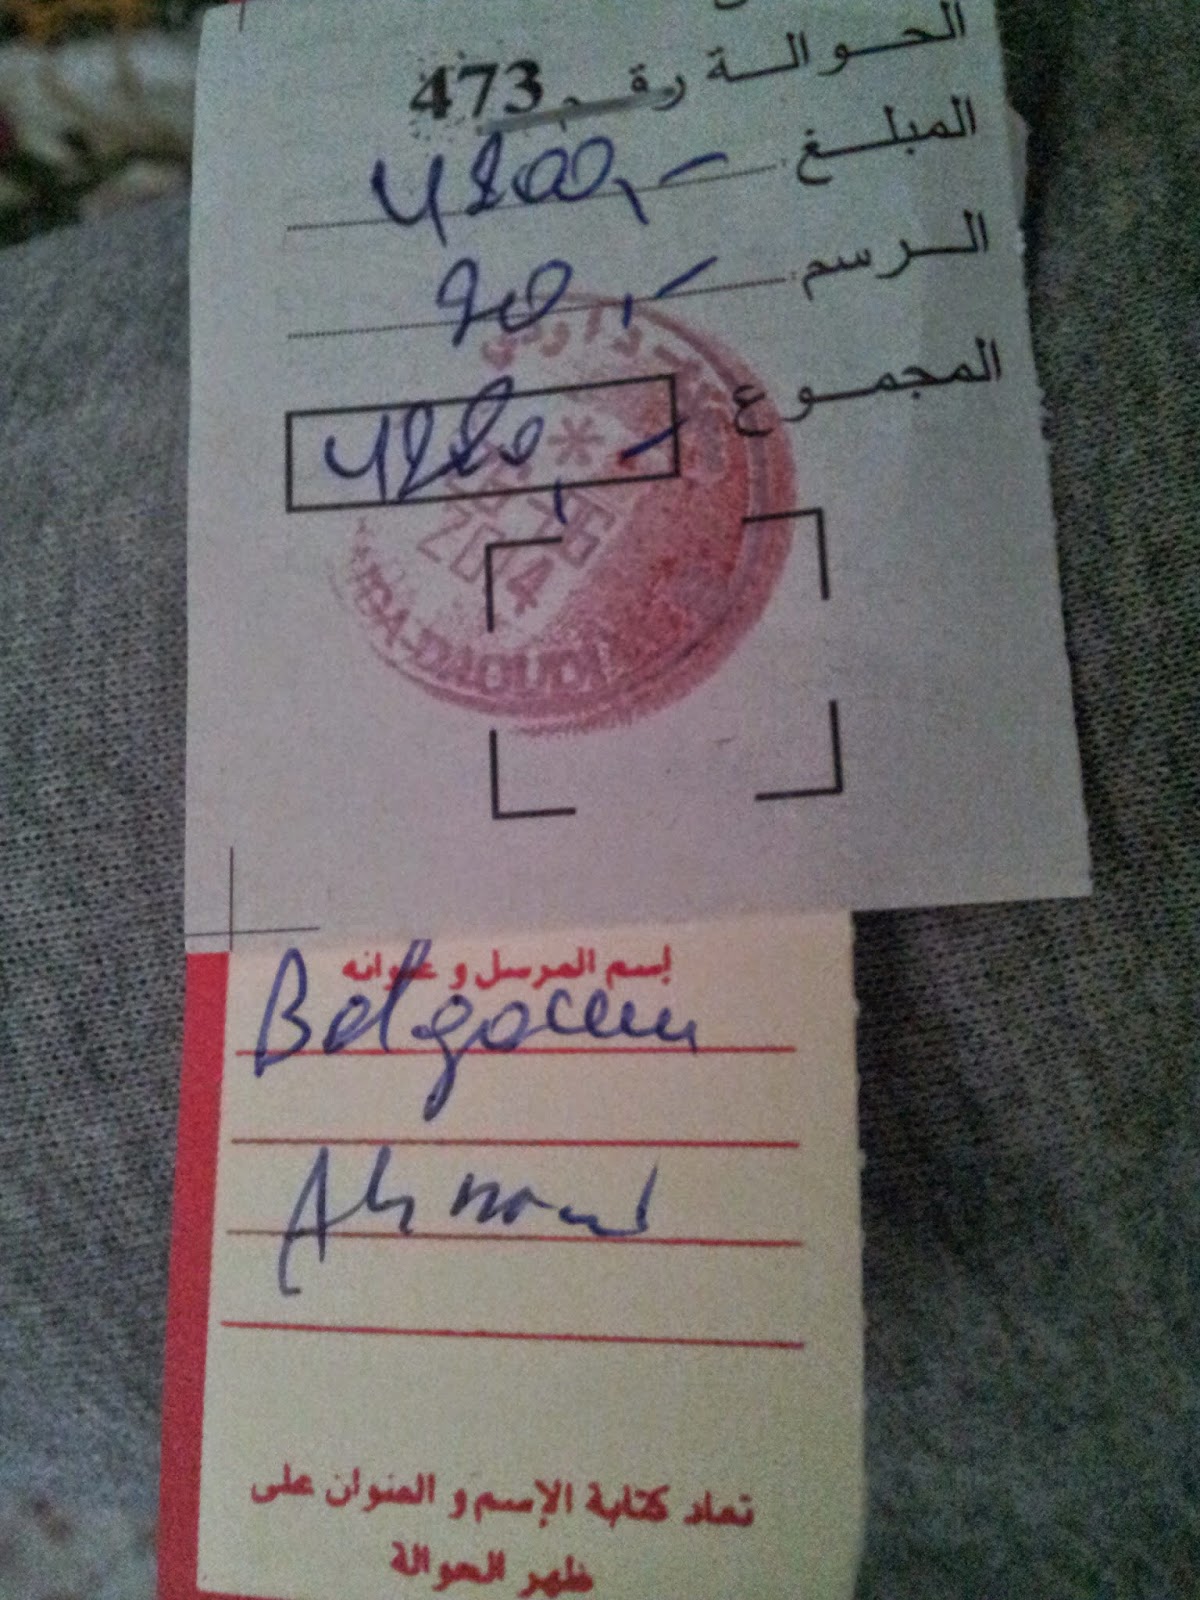 الحوالة رقم 473
المبلغ 4200,-
الرسم 20,-
المجموع 4220,-
2014
DA-DAOUDI
إسم المرسل و عنوانه
Belgacem
Ahmed
تعاد كتابة الإسم و العنوان على
ظهر الحوالة